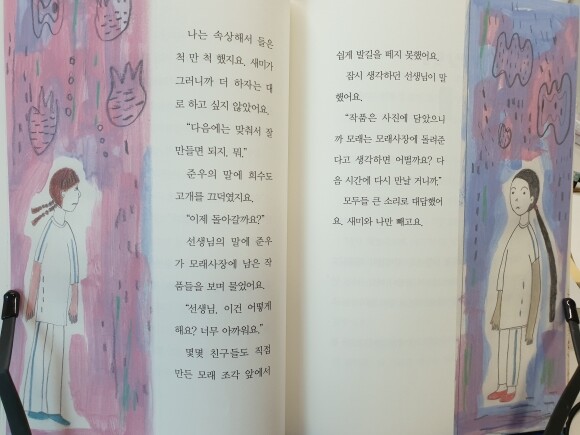 나는 속상해서 들은
척 만 척 했지요. 새미가
그러니까 더 하자는 대
로 하고 싶지 않았어요.
“다음에는 맞춰서 잘
만들면 되지, 뭐.”
준우의 말에 희수도
고개를 끄덕였지요.
“이제 돌아갈까요?”
선생님의 말에 준우
가 모래사장에 남은 작
품들을 보며 물었어요.
“선생님, 이건 어떻게
해요? 너무 아까워요.”
몇몇 친구들도 직접
만든 모래 조각 앞에서
쉽게 발길을 떼지 못했어요.
잠시 생각하던 선생님이 말
했어요.
“작품은 사진에 담았으니
까 모래는 모래사장에 돌려준
다고 생각하면 어떨까요? 다
음 시간에 다시 만날 거니까.”
모두들 큰 소리로 대답했어
요. 새미와 나만 빼고요.